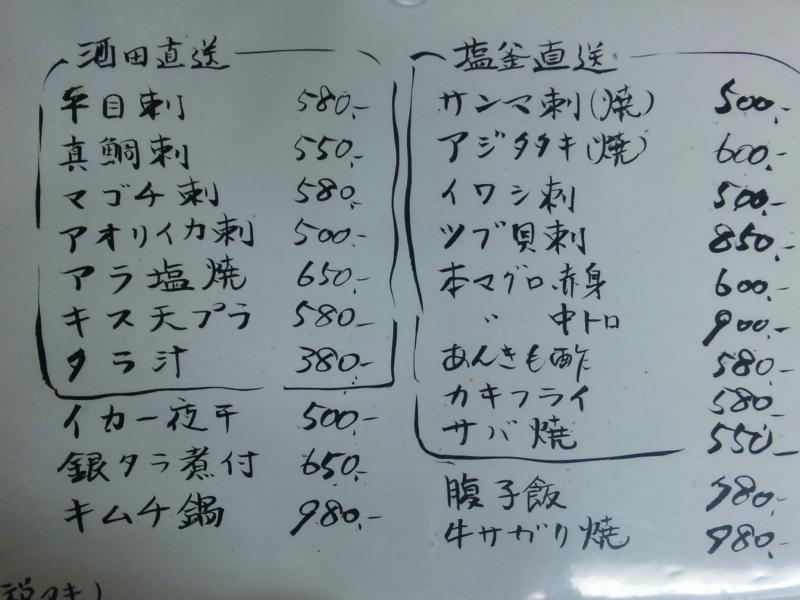 酒田直送
平目刺 580.-
真鯛刺 550.-
マゴチ刺 580.
アオリイカ刺 500.-
アラ塩焼 650.-
キス天プラ 580.-
タラ汁 380.-
イカ一夜干 500.-
銀タラ煮付 650.
キムチ鍋 980.-
塩釜直送
サンマ刺(焼) 500.-
アジタタキ(焼) 600.-
イワシ刺 500.-
ツブ貝刺 850.-
本マグロ赤身 600.-
〃 中トロ 900.-
あんきも酢 580.-
カキフライ 580.
サバ焼 550.-
腹子飯 980.-
牛サガリ焼 980.-